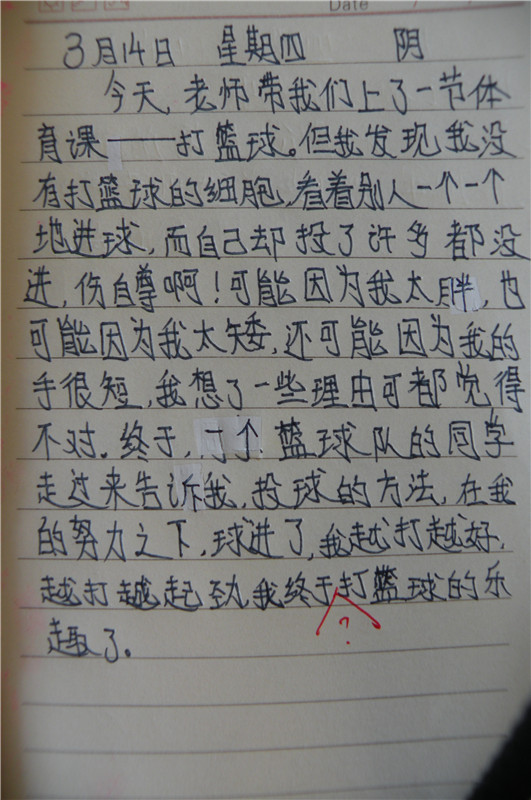 Date / /
3月14日 星期四 阴
今天,老师带我们上了一节体
育课——打篮球。但我发现我没
有打篮球的细胞,看着别人一个一个
地进球,而自己却投了许多都没
进,伤自尊啊!可能因为我太胖,也
可能因为我太矮,还可能因为我的
手很短,我想了一些理由可都觉得
不对。终于,一个篮球队的同学
走过来告诉我,投球的方法,在我
的努力之下,球进了,我越打越好,
越打越起劲,我终于打篮球的乐
?
趣了。